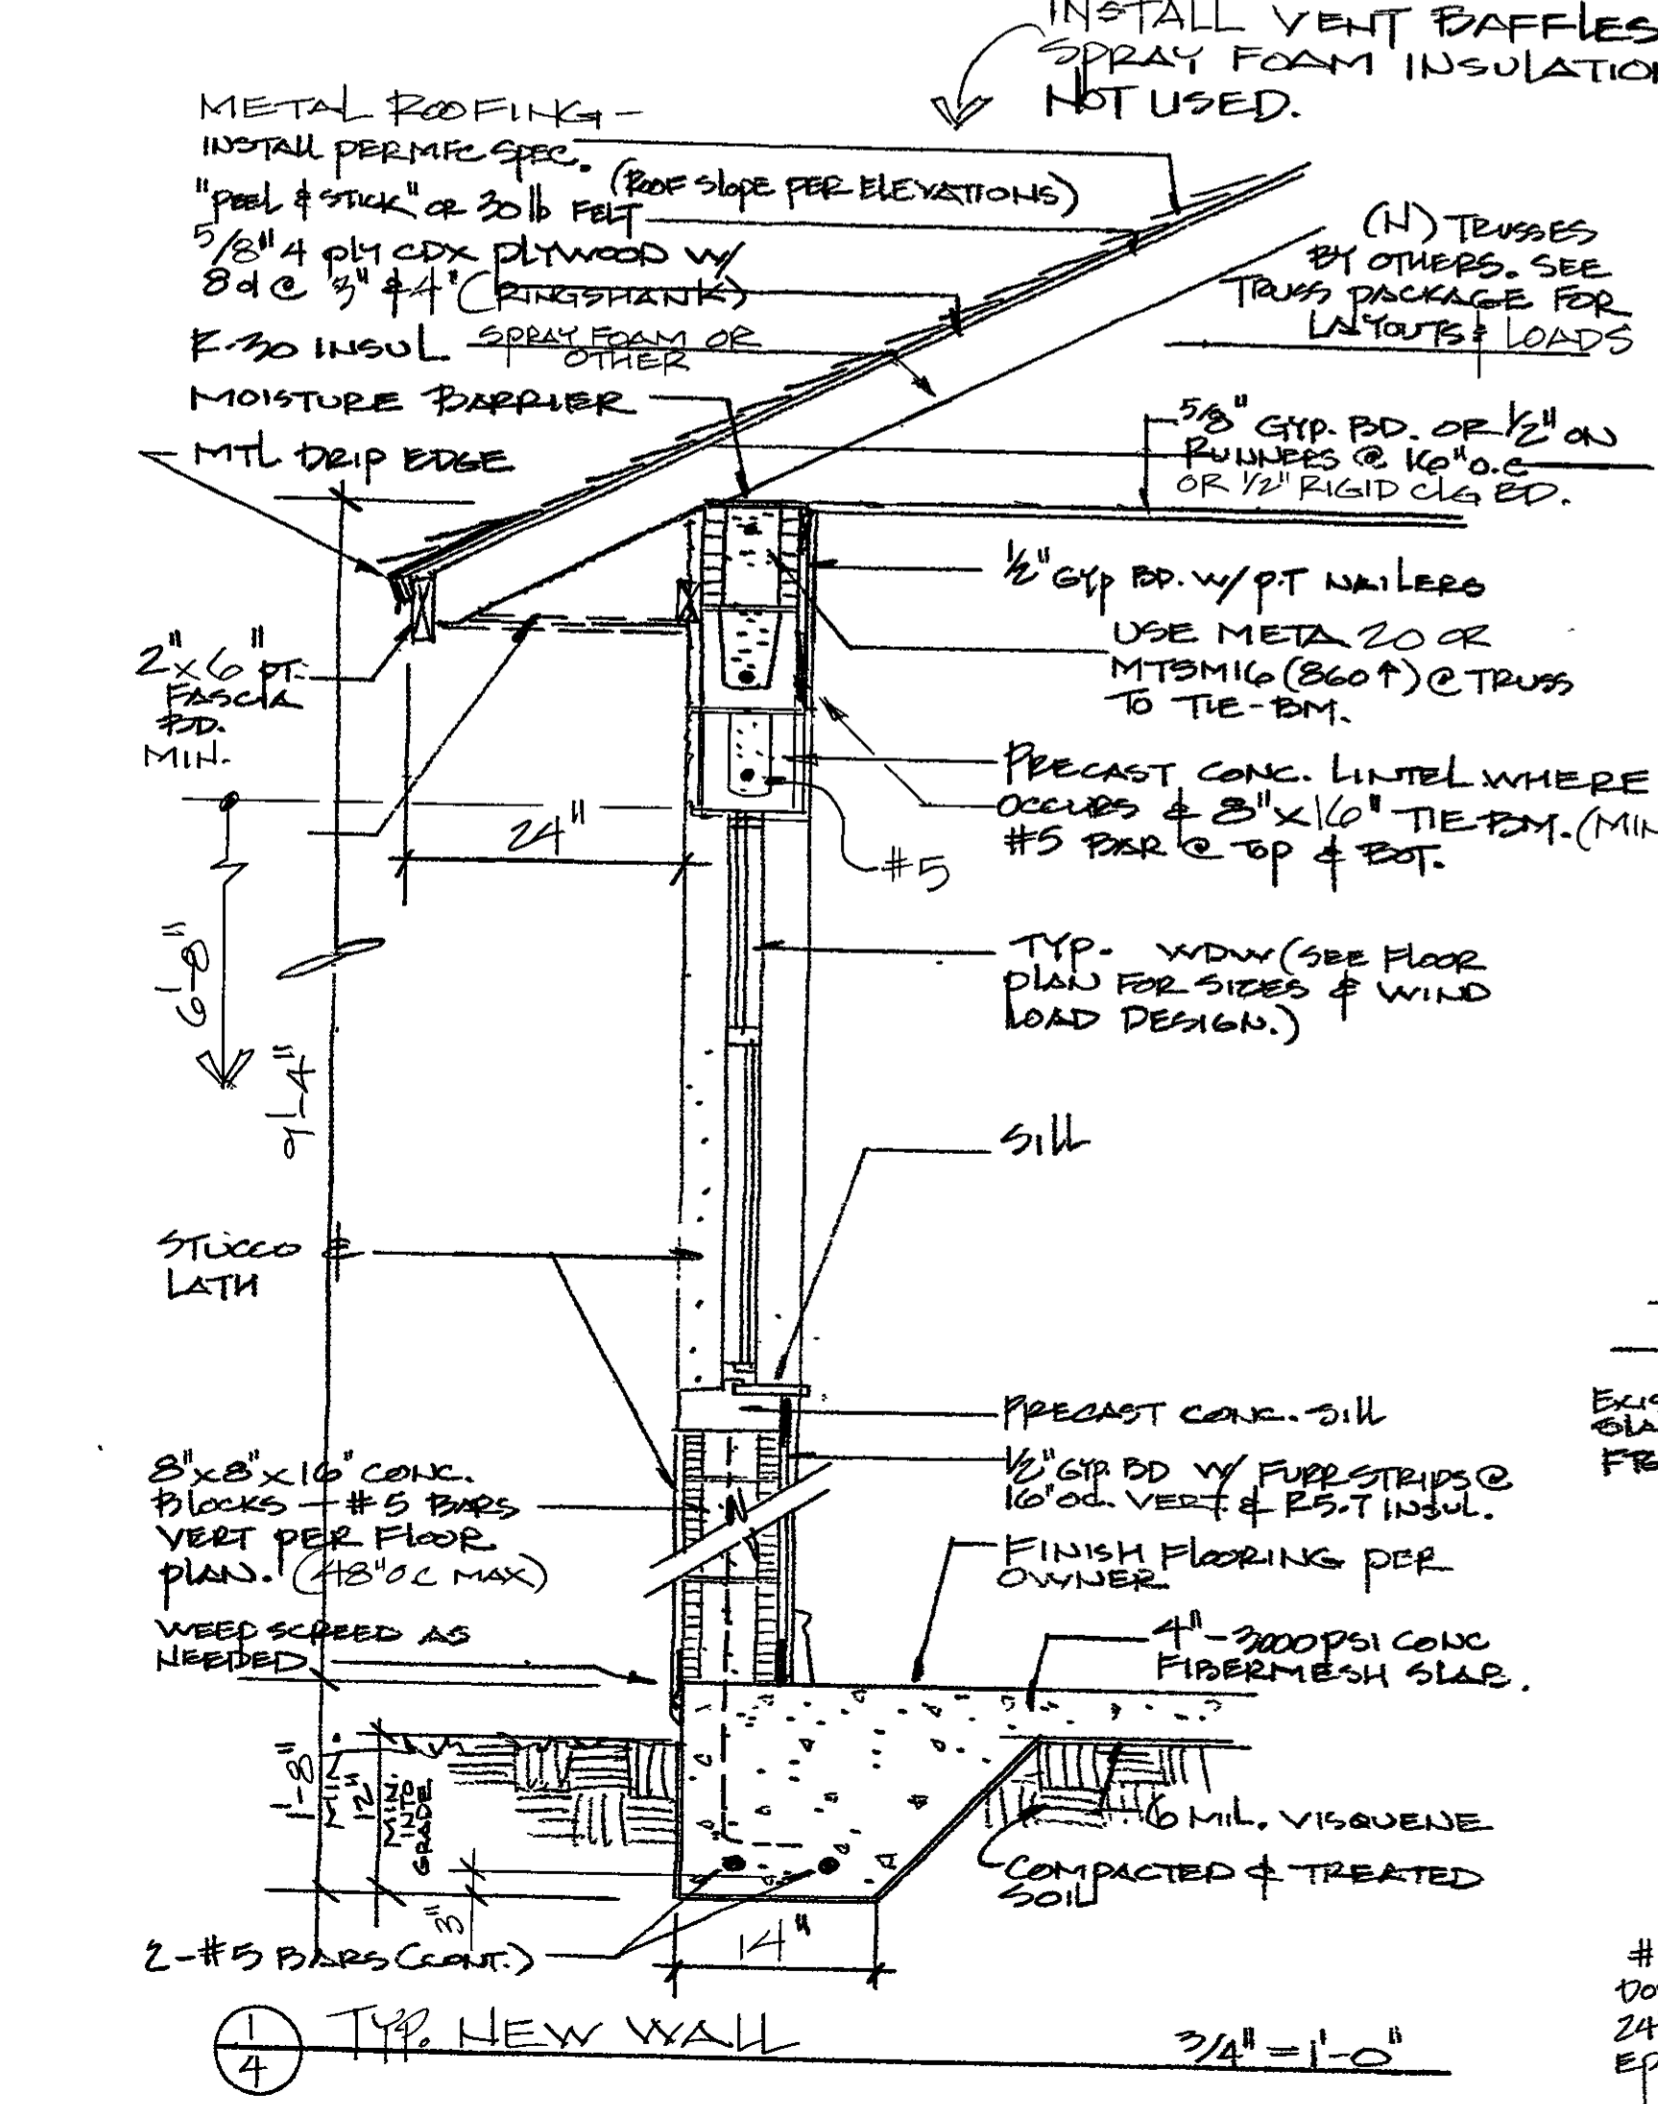 INSTALL VENT BAFFLES
SPRAY FOAM INSULATION
NOT USED.
METAL ROOFING -
INSTALL PER MFC SPEC.
(ROOF SLOPE PER ELEVATIONS)
"PEEL & STICK" OR 30 lb FELT
5/8" 4 PLY CDX PLYWOOD W/
8d @ 3" & 4" (RINGSHANK)
R-30 INSUL SPRAY FOAM OR
OTHER
MOISTURE BARRIER
MTL DRIP EDGE
(N) TRUSSES
BY OTHERS. SEE
TRUSS PACKAGE FOR
LAYOUTS & LOADS
5/8" GYP. BD. OR 1/2" ON
RUNNERS @ 16" O.C
OR 1/2" RIGID CLG BD.
1/2" GYP BD. W/ P.T NAILERS
USE META 20 OR
MTSM16 (860↑) @ TRUSS
TO TIE-BM.
2"x6" PT.
FASCIA
BD.
MIN.
PRECAST CONC. LINTEL WHERE
OCCURS & 8"x16" TIE BM. (MIN
#5 BAR @ TOP & BOT.
24"
#5
6'-8"
9'-4"
TYP. WDW (SEE FLOOR
PLAN FOR SIZES & WIND
LOAD DESIGN.)
SILL
STUCCO &
LATH
PRECAST CONC. SILL
1/2" GYP. BD W/ FURR STRIPS @
16" OC. VERT. & R5.7 INSUL.
8"x8"x16" CONC.
BLOCKS - #5 BARS
VERT PER FLOOR
PLAN. (48" OC MAX)
FINISH FLOORING PER
OWNER.
WEEP SCREED AS
NEEDED
4" - 3000 PSI CONC
FIBERMESH SLAB.
1'-8"
MIN.
12"
MIN.
INTO
GRADE
6 MIL. VISQUENE
COMPACTED & TREATED
SOIL
3"
14"
2-#5 BARS (CONT.)
1
4
TYP. NEW WALL
3/4" = 1'-0"
EXIS
SLA
#
24
EP